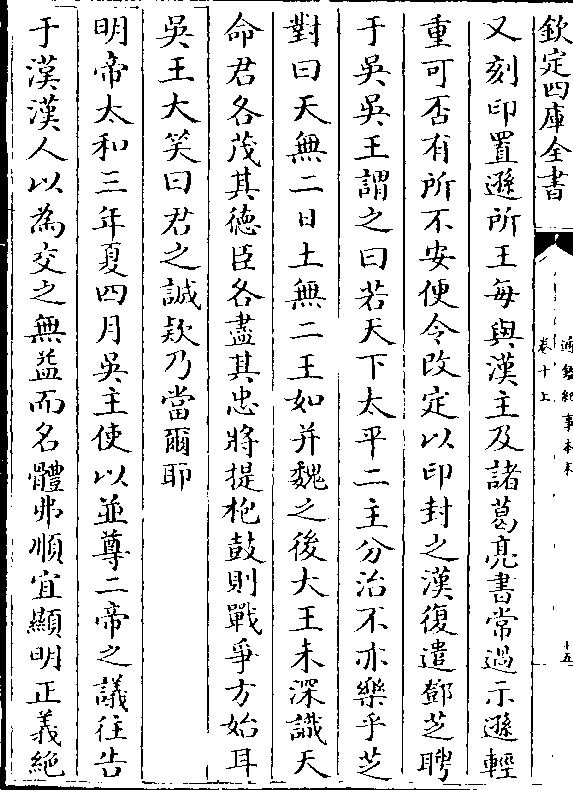 欽定四庫全書
通鑑紀事本末
卷十上
十五
又刻印置遜所王每與漢主及諸葛亮書常過示遜輕
重可否有所不安便令改定以印封之漢復遣鄧芝聘
于吳吳王謂之曰若天下太平二主分治不亦樂乎芝
對曰天無二日土無二王如并魏之後大王未深識天
命君各茂其徳臣各盡其忠將提枹鼓則戰爭方始耳
吳王大笑曰君之誠欵乃當爾耶
明帝太和三年夏四月吳主使以並尊二帝之議往告
于漢漢人以為交之無益而名體弗順宜顯明正義絶